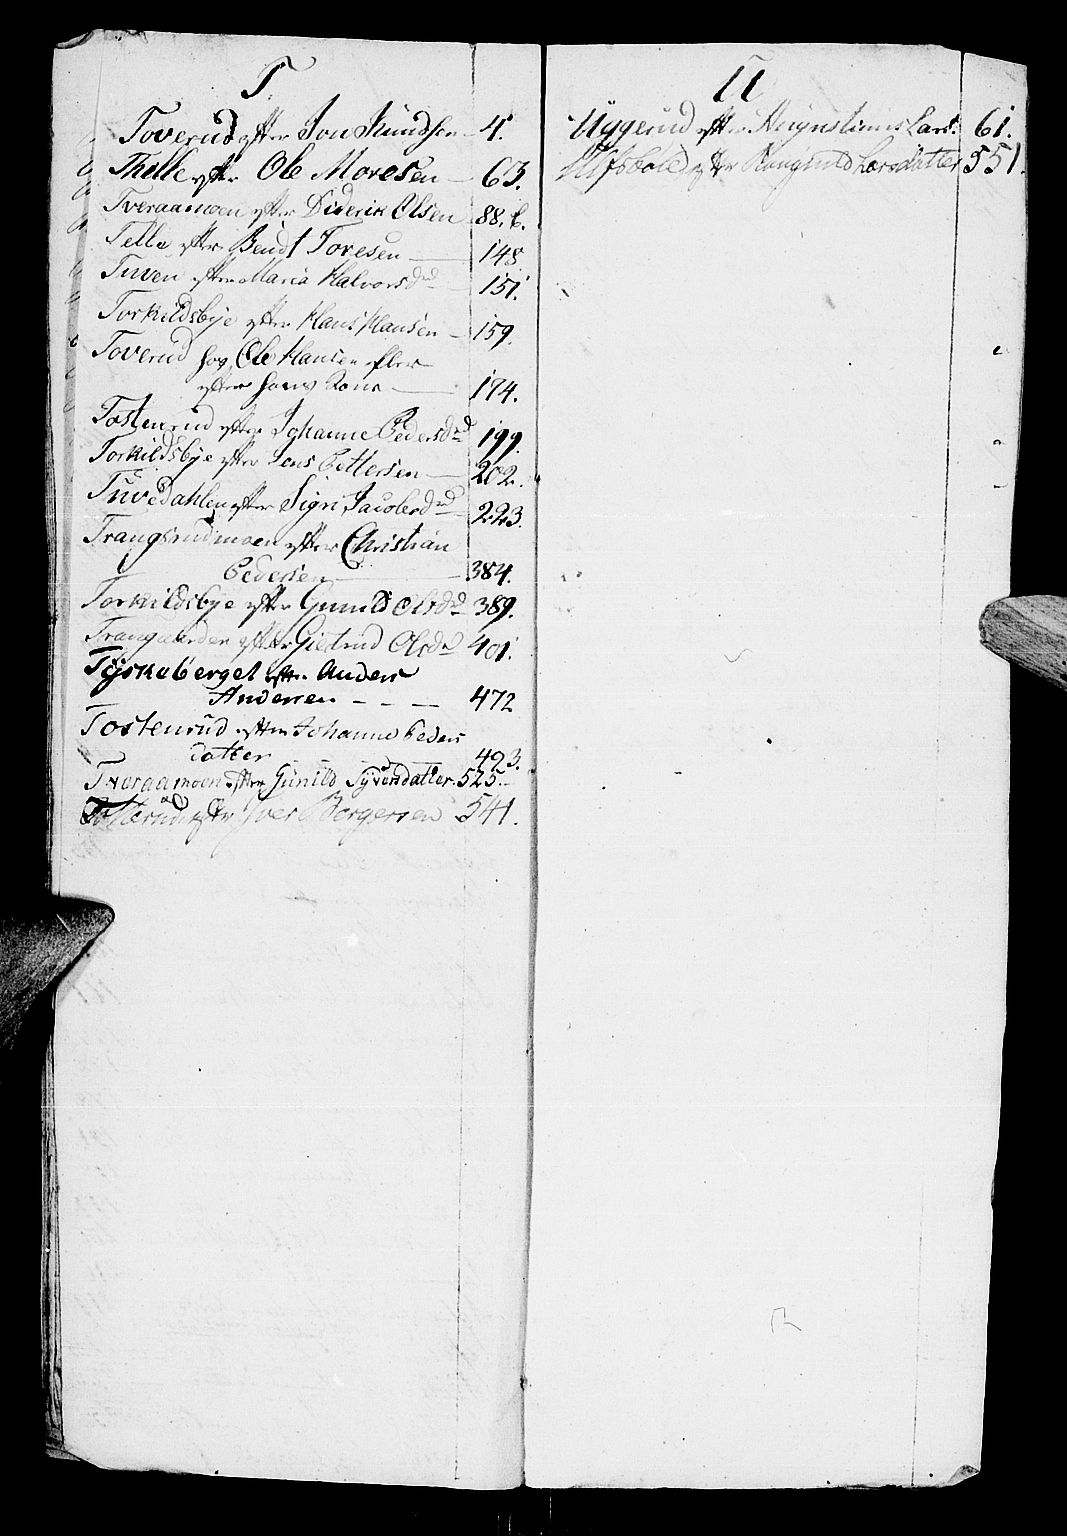 T.
Toverud efter Jon Knudsen 4.
Thelle efter Ole Moresen 63.
Tveraamoen efter Diderik Olsen 88. b.
Telle efter Bendt Toresen 148
Tuven efter Maria Halvorsd. 151.
Torkildsbye efter Hans Hansen 159.
Toverud hos Ole Hansen
efter hans Kone 174.
Tostenrud efter Johanne Pedersd. 199.
Torkildsbye efter Jens Pettersen 202.
Tuvedahlen efter Sigri Jacobsd. 223.
Trangsrudmoen efter Christian
Pedersen 384.
Torkildsbye efter Gunild Olsd. 389.
Trangaarden efter Giertrud Olsd. 401.
Tyskeberget efter Anders
Andersen - - - 472
Tostenrud efter Johanne Peders
datter 493.
Tveraamoen efter Gunild Syversdatter 525.
efter Iver Borgersen 541.
U
Uggerud efter Augustinus Lars. 61.
Ulfsbøle efter Rangnild Larsdatter 551.